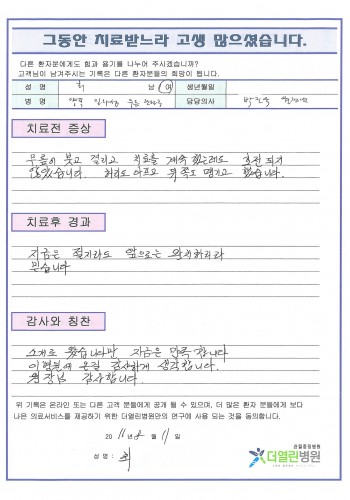 그동안 치료받느라 고생 많으셨습니다.
다른 환자분에게도 힘과 용기를 나누어 주시겠습니까?
고객님이 남겨주시는 기록은 다른 환자분들의 희망이 됩니다.
성 명 최 남 여 생년월일
병 명 무릎 담당의사
치료전 증상
무릎이 붓고 걸리고 치료를 계속 했는데도 호전 되지
않았습니다. 허리도 아프고 뒤쪽도 땡기고 했습니다.
치료후 경과
지금은 절기라도 앞으로는 완치하리라
믿습니다
감사와 칭찬
소개로 왔습니다만, 지금은 만족합니다
이병원에 온걸 감사하게 생각합니다.
원장님 감사합니다.
위 기록은 온라인 또는 다른 고객 분들에게 공개 될 수 있으며, 더 많은 환자 분들에게 보다
나은 의료서비스를 제공하기 위한 더열린병원만의 연구에 사용 되는 것을 동의합니다.
20 11 년 8 월 11 일
성 명 : 최
관절중점병원
더열린병원